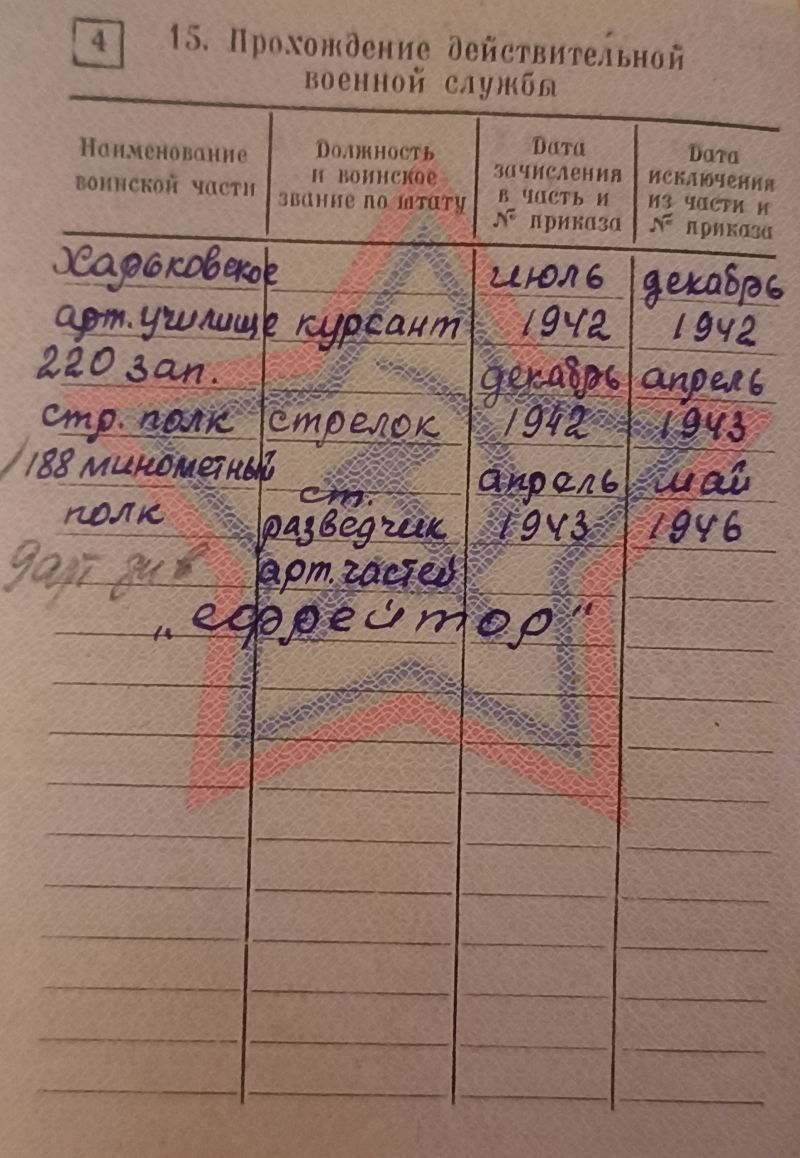 4
15. Прохождение действительной
военной службы
Наименование
воинской части
Должность
и воинское
звание по штату
Дата
зачисления
в часть и
№ приказа
Дата
исключения
из части и
№ приказа
Харьковское июль декабрь
арт. училище курсант 1942 1942
220 зап. декабрь апрель
стр. полк стрелок 1942 1943
188 минометный ст. апрель май
полк разведчик 1943 1946
9 арт див арт. частей
„ефрейтор“